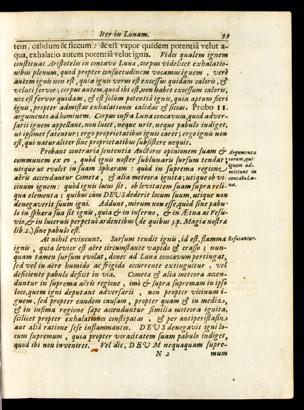 Iter in Lunam. 99
tem, calidum & siccum: & est vapor quidem potentiâ velut a-
qua, exhalatio autem potentiâ velut ignis. Vides qualem ignem
constituat Aristoteles in concavo Luna, corpus videlicet exhalatio-
nibus plenum, quod propter consuetudinem vocamus ignem, verè
autem ignis non est, quia ignis verus est excessus quidam caloris, &
veluti fervor; corpus autem, quod ibi est, non habet excessum caloris,
nec est fervor quidam, & est solùm potentiâ ignis, quia aptum fieri
ignis, propter admistas exhalationes calidas & siccas. Probo II.
argumento ad hominem. Corpus infra Luna concavum, quod adver-
sarij ignem appellant, non lucet, neque urit, neque pabulo indiget,
ut ipsimet fatentur; ergo proprietatibus ignis caret; ergo ignis non
est, qui naturaliter sine proprietatibus subsistere nequit.
Probant contraria sententia Auctores opinionem suam &
communem ex eo, quòd ignis noster sublunaris sursum tendat
utique ut evolet in suam Sphæram: quòd in suprema regione
aëris accendantur Cometa, & alia meteora ignita; utique ob vi-
cinum ignem: quòd ignis locus sit, ob levitatem suam supra reli-
qua elementa; quibus cùm DEUS dederit locum suum, utique non
denegaverit suum igni. Addunt, mirum non esse, quòd sine pabu-
lo in sphæra sua sit ignis, quia & in inferno, & in Ætna ac Vesu-
vio, & in lucernis perpetuò ardentibus (de quibus 3. p. Magiæ nostra
lib. 2.) sine pabulo est.
Argumenta
eorum, qui
ignem ad-
mittunt in
concavo Lu-
na.
At nihil evincunt. Sursum tendit ignis, id est, flamma
ignis, quia levior est aëre circumstante vapido & crasso; nun-
quam tamen sursum evolat, donec ad Luna concavum pertingat,
sed vel in aëre humido ac frigido occurrente extinguitur, vel
deficiente pabulo deficit in via. Cometa & alia meteora accen-
duntur in suprema aëris regione, imò & supra supremam in ipso
loco, quem igni deputant adversarij, non propter vicinum i-
gnem, sed propter eandem causam, propter quam & in media,
& in infima regione sæpe accenduntur similia meteora ignita,
scilicet propter exhalationes constipatas, & per antiperistasin,
aut aliâ ratione sese inflammantes. DEUS denegavit igni lo-
cum supremum, quia propter voracitatem suam pabulo indiget,
quod ibi non inveniret. Vel dic, DEUM nequaquam supre-
Refutantur.
N 2 mum